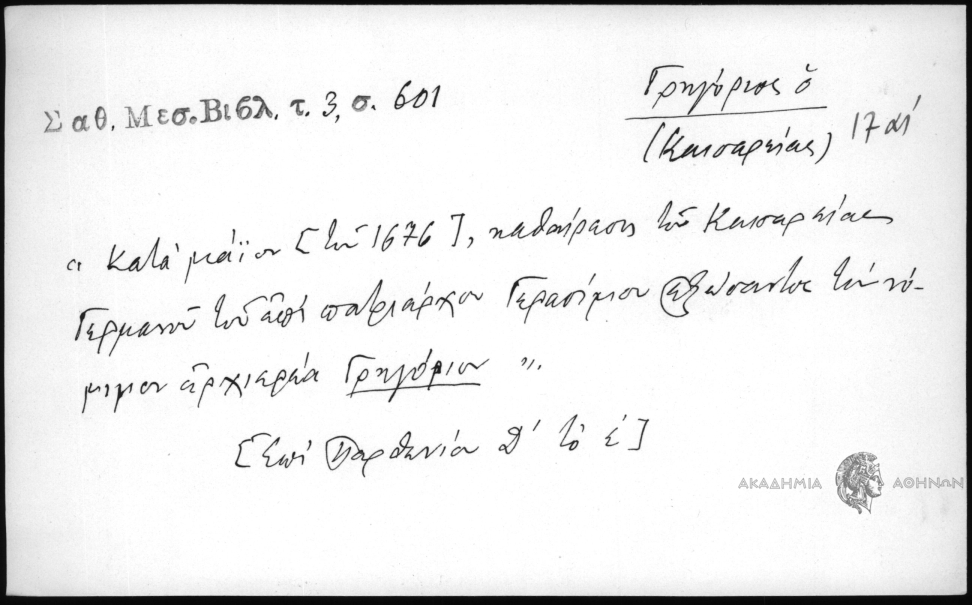 Σαθ. Μεσ. Βιβλ. τ. 3, σ. 601
Γρηγόριος ὁ
(Καισαρείας) 17 αἰ
« Κατὰ μάϊον [τοῦ 1676], καθαίρεσις τοῦ Καισαρείας
Γερμανοῦ τοῦ ἐπὶ πατριάρχου Γερασίμου ἐξώσαντος τὸν νό-
μιμον ἀρχιερέα Γρηγόριον ».
[Ἐπὶ Παρθενίου Δ´ τὸ ε´]
ΑΚΑΔΗΜΙΑ ΑΘΗΝΩΝ